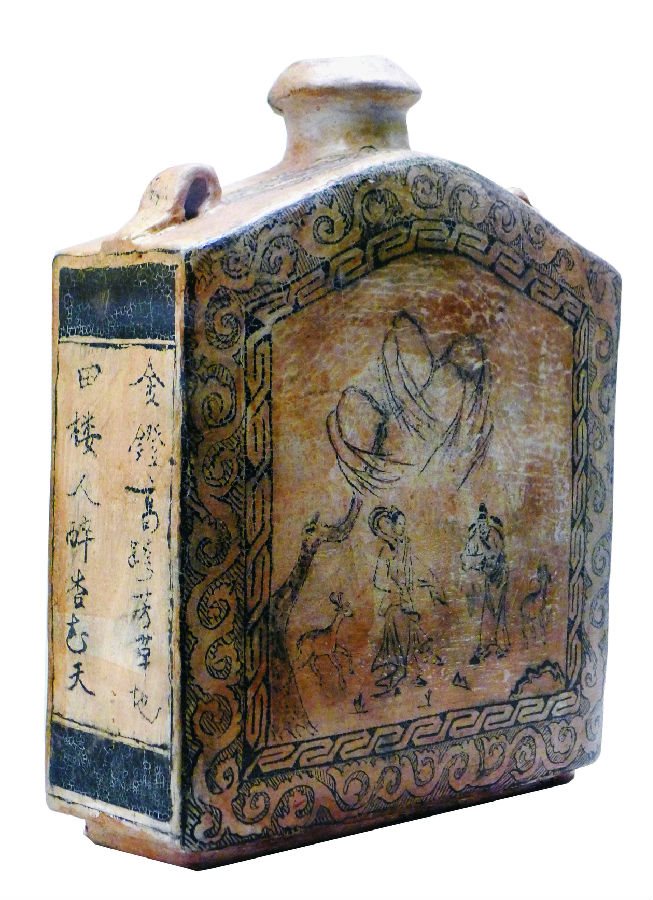 金鐙高跨芳草地
田楼人醉杏花天